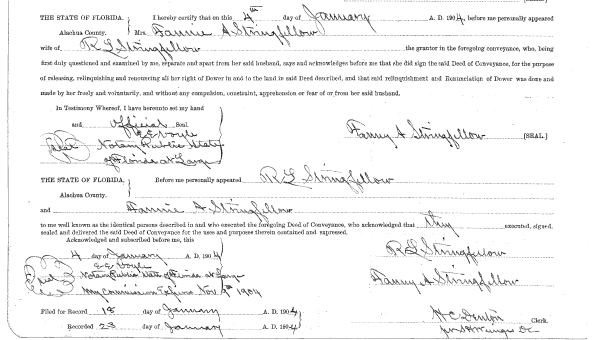 THE STATE OF FLORIDA, I hereby certify that on this 4th day of January A. D. 1904, before me personally appeared
Alachua County. Mrs. Fannie A Stringfellow
wife of R L Stringfellow the grantor in the foregoing conveyance, who, being
first duly questioned and examined by me, separate and apart from her said husband, says and acknowledges before me that she did sign the said Deed of Conveyance, for the purpose
of releasing, relinquishing and renouncing all her right of Dower in and to the land in said Deed described, and that said relinquishment and Renunciation of Dower was done and
made by her freely and voluntarily, and without any compulsion, constraint, apprehension or fear of or from her said husband.
In Testimony Whereof, I have hereunto set my hand
and official Seal.
E E Voyle
Seal Notary Public State Fanny A Stringfellow (SEAL.)
of Florida at Large
THE STATE OF FLORIDA, Before me personally appeared R L Stringfellow
Alachua County.
and Fannie A Stringfellow
to me well known as the identical persons described in and who executed the foregoing Deed of Conveyance, who acknowledged that they executed, signed,
sealed and delivered the said Deed of Conveyance for the uses and purposes therein contained and expressed.
Acknowledged and subscribed before me, this
4 day of January A. D. 1904 R L Stringfellow
E E Voyle
Seal Notary Public State of Florida at Large Fanny A Stringfellow
My Commission Expires Nov 9th 1904
Filed for Record 18 day of January A. D. 1904 H C Denton Clerk.
Recorded 23 day of January A. D. 1904 DC